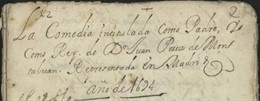 2
La Comedia intitulada Como Padre, Y
Como Rey. de Dr Juan Perez de Mont
talvan. Representada en Madrid
Año de 1634